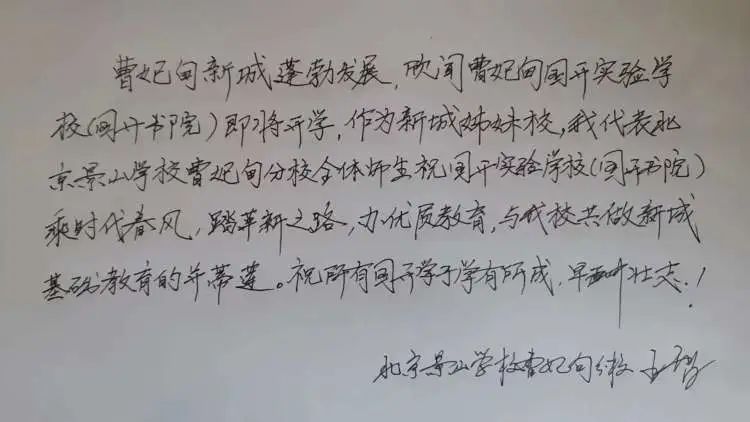 曹妃甸新城蓬勃发展,欣闻曹妃甸国开实验学
校(国开书院)即将开学,作为新城姊妹校,我代表北
京景山学校曹妃甸分校全体师生祝国开实验学校(国开书院)
乘时代春风,踏革新之路,办优质教育,与我校共做新城
基础教育的并蒂莲。祝所有国开学子学有所成,早酬壮志!
北京景山学校曹妃甸分校